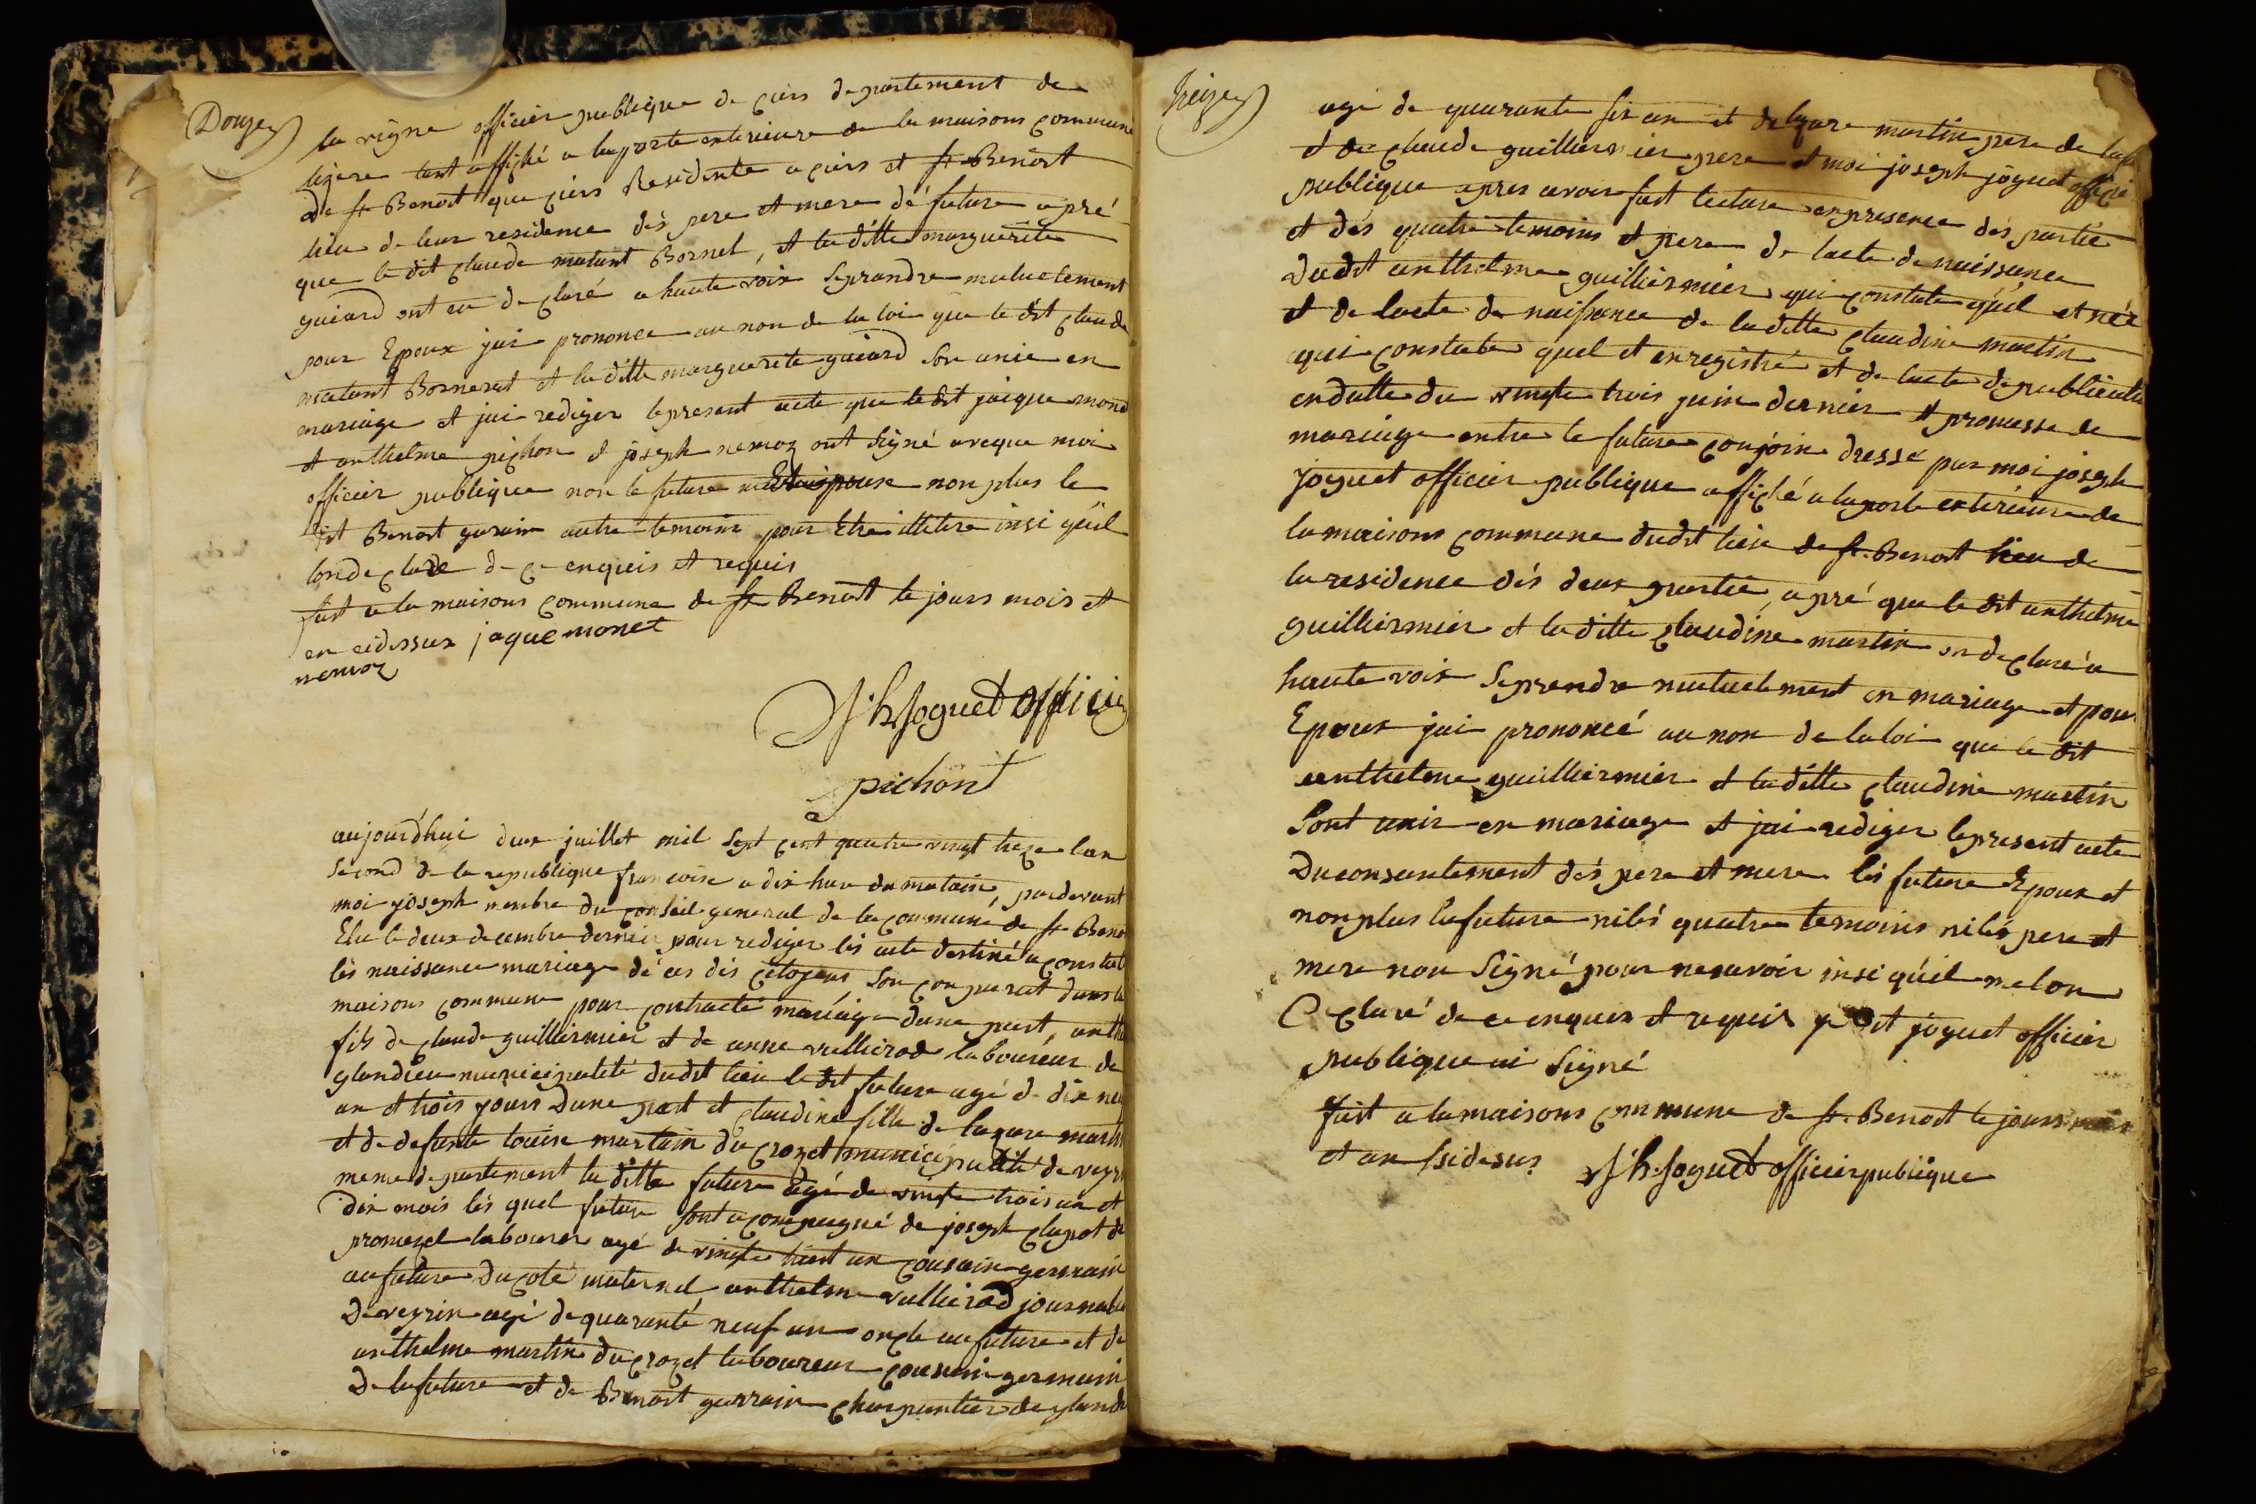 Douze
la vigne officier publique de ciers departement de
lizere tant affiché a la porte exterieure de la maisons commune
de st Benoit que ciers Residente a ciers et st Benoit
lieu de leur residence dés pere et mere dé future apré
que le dit claude matant Bornet, et la ditte marguerite
guiard ont en declaré a haute voix seprandre mutuelement
pour Epoux jai prononce au non de la loi que le dit claude
matant et la ditte marguerite guiard son unie en
mariage et jai rediger lepresent acte que le dit jaique monet
et anthelme pichon et joseph nemoz ont signé aveque moi
officier publique non le future non plus le
dit Benoit guerain autre temoins pour Etre illetere insi qu'il
lon declare de ce enquis et requis
fait a la maisons commune de st Benoit le jours mois et
an cidessux jaque monet
nemoz
Jh Joguet officier
pichont
aujourd'hui deux juillet mil sept cent quatre vingt treze lan
second de la republique francoise a dix hure du matain, pardevant
moi joseph membre du conseil general de la commune de st Beno
Elu le deux decembre dernier pour rediger lés acte destiné a constat
lés naissance mariage dé cés dés citoyens son comparut dans la
maisons commune pour contracté mariage dune part, anth
fils de claude guilliermier et de anne vullierod laboureur de
glandieu municipalité dudit lieu le dit future agé de dix neu
an et trois yours Dune part et claudine fille de lazare marti
et de defunte louise martain du crozet municipalité de veyri
meme departement la ditte future agé de vingte trois an et
dix mois lés quel future sont acompagné de joseph clapot de
laboureur agé de vingte huit an cousain germain
au future du coté maternel anthelme vullierod journalie
De veyrin agé de quaranté neuf an oncle au future et de
anthelme martin du crozet laboureur cousein germain
De la future et de Benoit guerrain charpantier de gland
Treize
agé de quarante six an et de lazare martin pere de la fu
et de claude guilliermier pere et moi joseph joguet officie
publique apres avoir fait lecture enpresence dés partie
et dés quatre temoins et pere de lacte de naissance
Dudit anthelme guilliermier qui constate quil et née
et de lacte de naissance de laditte claudine martin
qui constate quel et enregistré et de lacte de publicatio
endatte du vingte trois juin dernier et promesse de
mariage entre le future conjoin dressé par moi joseph
joguet officier publique affiché a laporte exterieure de
la maisons commune dudit lieu de st Benoit lieu de
la residence dés deux partie, apré que le dit anthelme
guilliermier et la ditte claudine martin on declaré a
haute voix seprendre mutuelement en mariage et pour
Epoux jai prononcé au non de la loi que le dit
anthelme guilliermier et la ditte claudine martin
sont unir en mariage et jai rediger lepresent acte
Du consantement dés pere et mere lés future Epoux et
non plus la future nilés quatre temoins nilés pere et
mere non signé pour nesavoir insi qu'il melon
declaré de ce enquis et requis joguet officier
publique ai signé
fait a la maisons commune de st Benoit le jours mois
et an sidesus Jh Joguet officier publique